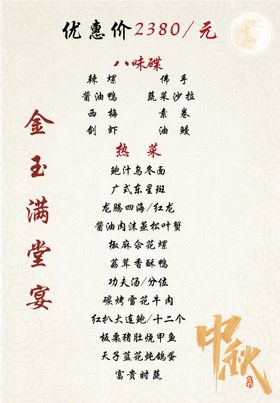 优惠价2380/元
八味碟
辣螺 佛手
酱油鸭 蔬菜沙拉
西梅 素卷
剑虾 油鳗
热菜
鲍汁乌冬面
广式东星斑
龙腾四海/红龙
酱油肉沫蒸松叶蟹
椒麻汆花螺
荔茸香酥鸭
功夫汤/分位
碳烤雪花牛肉
红扒大连鲍/十二个
板栗猪肚烧甲鱼
天子蓝花炖鸽蛋
富贵时蔬
金玉满堂宴
中秋